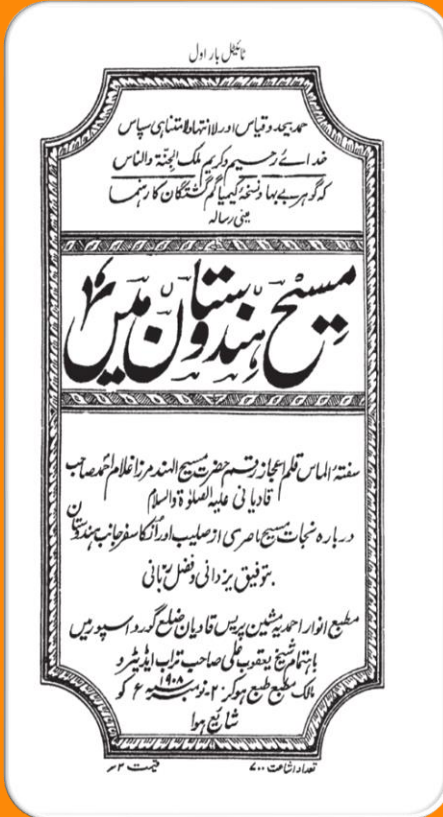 ٹائیٹل بار اول
حمد بیحد و قیاس اور لا انتہا ولا متناہی سپاس
خدائے رحیم و کریم ملک الجنّۃ والناس
کہ گوہر بے بہا و نسخۂ کیمیا گم گشتگان کا رہنما
یعنی رسالہ
مسیح ہندوستان میں
سفتۂ الماس قلم اعجاز رقم حضرت مسیح الہند مرزا غلام احمد صاحب
قادیانی علیہ الصلوٰۃ والسلام
دربارہ نجات مسیح ناصری از صلیب اور اُنکا سفر جانب ہندوستان
بتوفیق یزدانی و فضل ربّانی
مطبع انوار احمدیہ مشین پریس قادیان ضلع گورداسپور میں
باہتمام شیخ یعقوب علی صاحب تراب ایڈیٹر و
مالک مطبع طبع ہوکر ۲۰۔نومبر ۱۹۰۸ء کو
شائع ہوا
تعداد اشاعت ۷۰۰
قیمت ۳؍